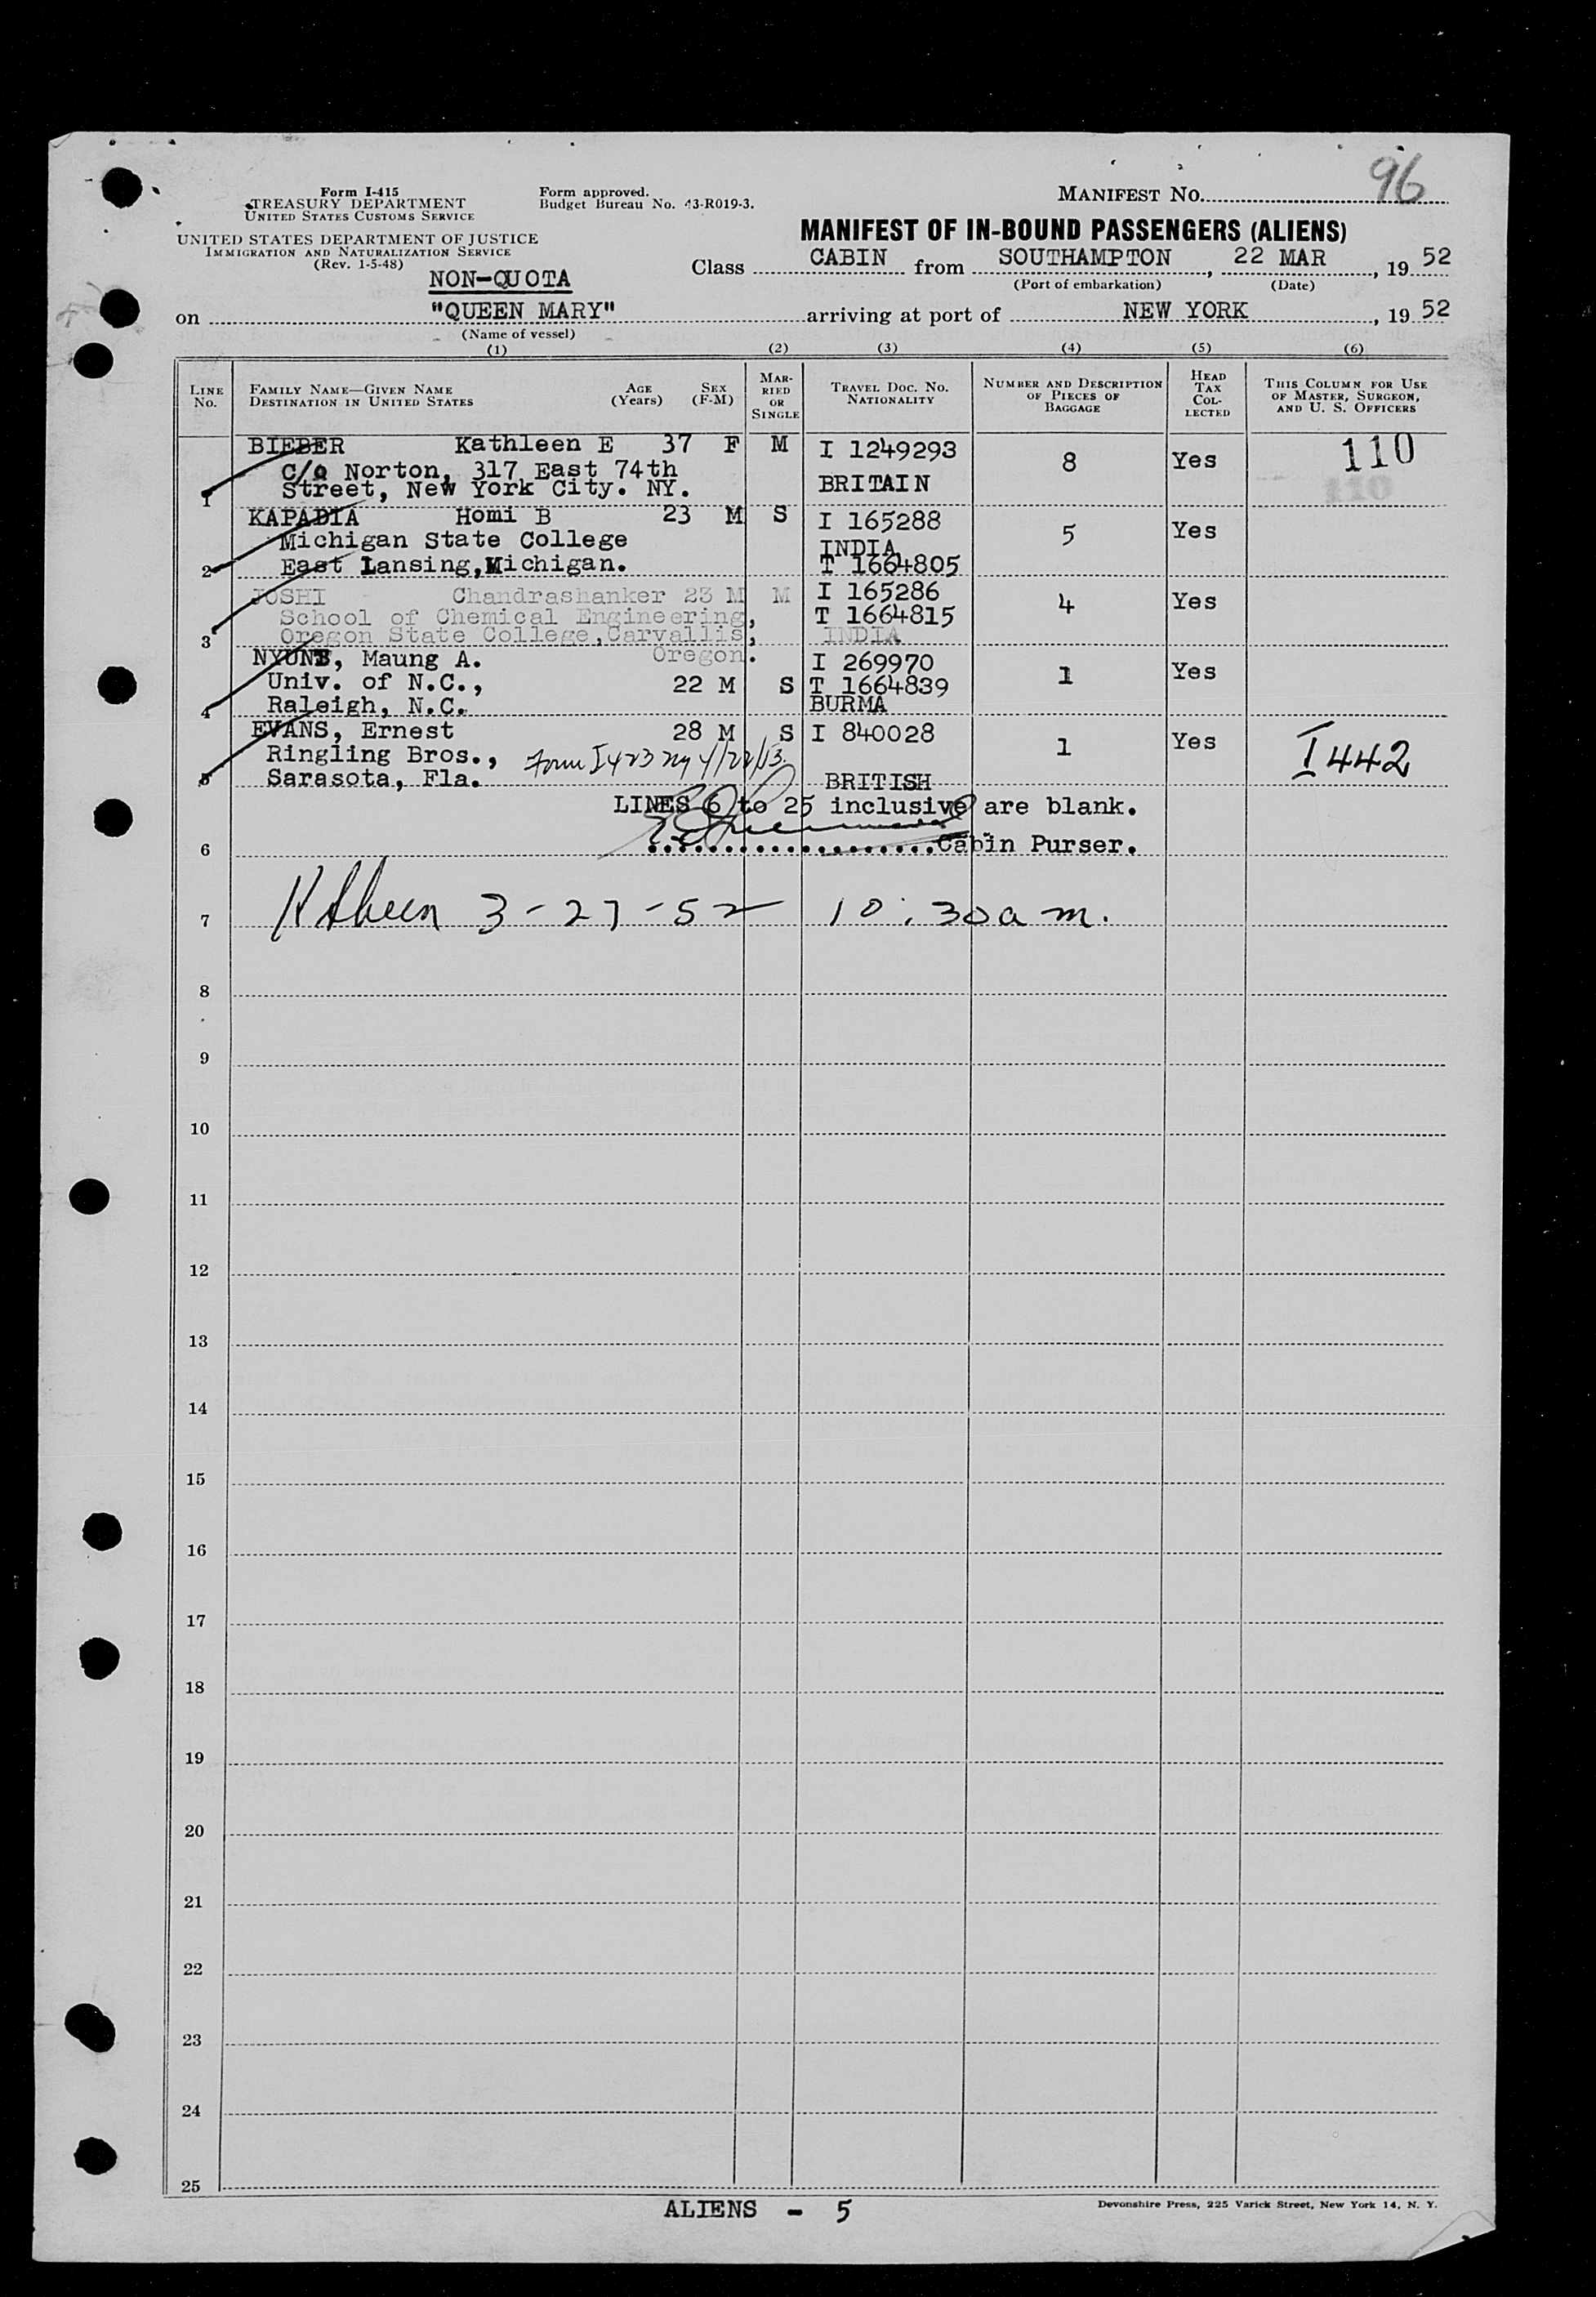 96
Form I-415
TREASURY DEPARTMENT
UNITED STATES CUSTOMS SERVICE
Form approved.
Budget Bureau No. 43-R019-3.
MANIFEST NO.
UNITED STATES DEPARTMENT OF JUSTICE
IMMIGRATION AND NATURALIZATION SERVICE
(Rev. 1-5-48)
MANIFEST OF IN-BOUND PASSENGERS (ALIENS)
NON-QUOTA
Class CABIN from SOUTHAMPTON, 22 MAR, 19 52
(Port of embarkation) (Date)
on "QUEEN MARY" arriving at port of NEW YORK, 19 52
(Name of vessel)
(1) (2) (3) (4) (5) (6)
LINE NO. FAMILY NAME—GIVEN NAME DESTINATION IN UNITED STATES AGE (Years) SEX (F-M) MARRIED OR SINGLE TRAVEL DOC. NO. NATIONALITY NUMBER AND DESCRIPTION OF PIECES OF BAGGAGE HEAD TAX COLLECTED THIS COLUMN FOR USE OF MASTER, SURGEON, AND U. S. OFFICERS
BIEBER Kathleen E 37 F M I 1249293 8 Yes 110
C/o Norton, 317 East 74th 110
1 Street, New York City. NY. BRITAIN
KAPADIA Homi B 23 M S I 165288 5 Yes
Michigan State College INDIA
2 East Lansing, Michigan. T 1664805
JOSHI Chandrashanker 23 M M I 165286 4 Yes
School of Chemical Engineering, T 1664815
3 Oregon State College, Carvallis, INDIA
Oregon.
NYUNT, Maung A. I 269970 1 Yes
Univ. of N.C., 22 M S T 1664839
4 Raleigh, N.C. BURMA
EVANS, Ernest 28 M S I 840028 1 Yes I 442
Ringling Bros., Form I 423 ny 4/22/53.
5 Sarasota, Fla. BRITISH
LINES 6 to 25 inclusive are blank.
6 Cabin Purser.
7 3-27-52 10:30 a m.
8
9
10
11
12
13
14
15
16
17
18
19
20
21
22
23
24
25
ALIENS - 5
Devonshire Press, 225 Varick Street, New York 14, N. Y.